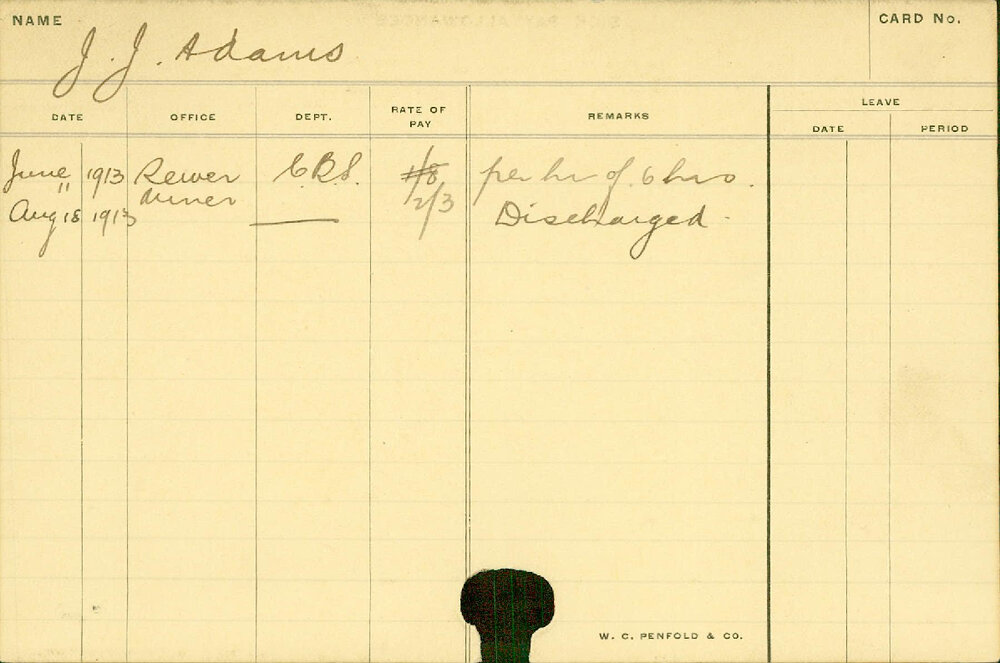 NAME J. J. Adams CARD No.
DATE OFFICE DEPT. RATE OF PAY REMARKS LEAVE
DATE PERIOD
June 1913 Sewer C.R.S. per hr of 6 hrs.
" Miner 2/3
Aug 18 1913 — Discharged
W. C. PENFOLD & CO.